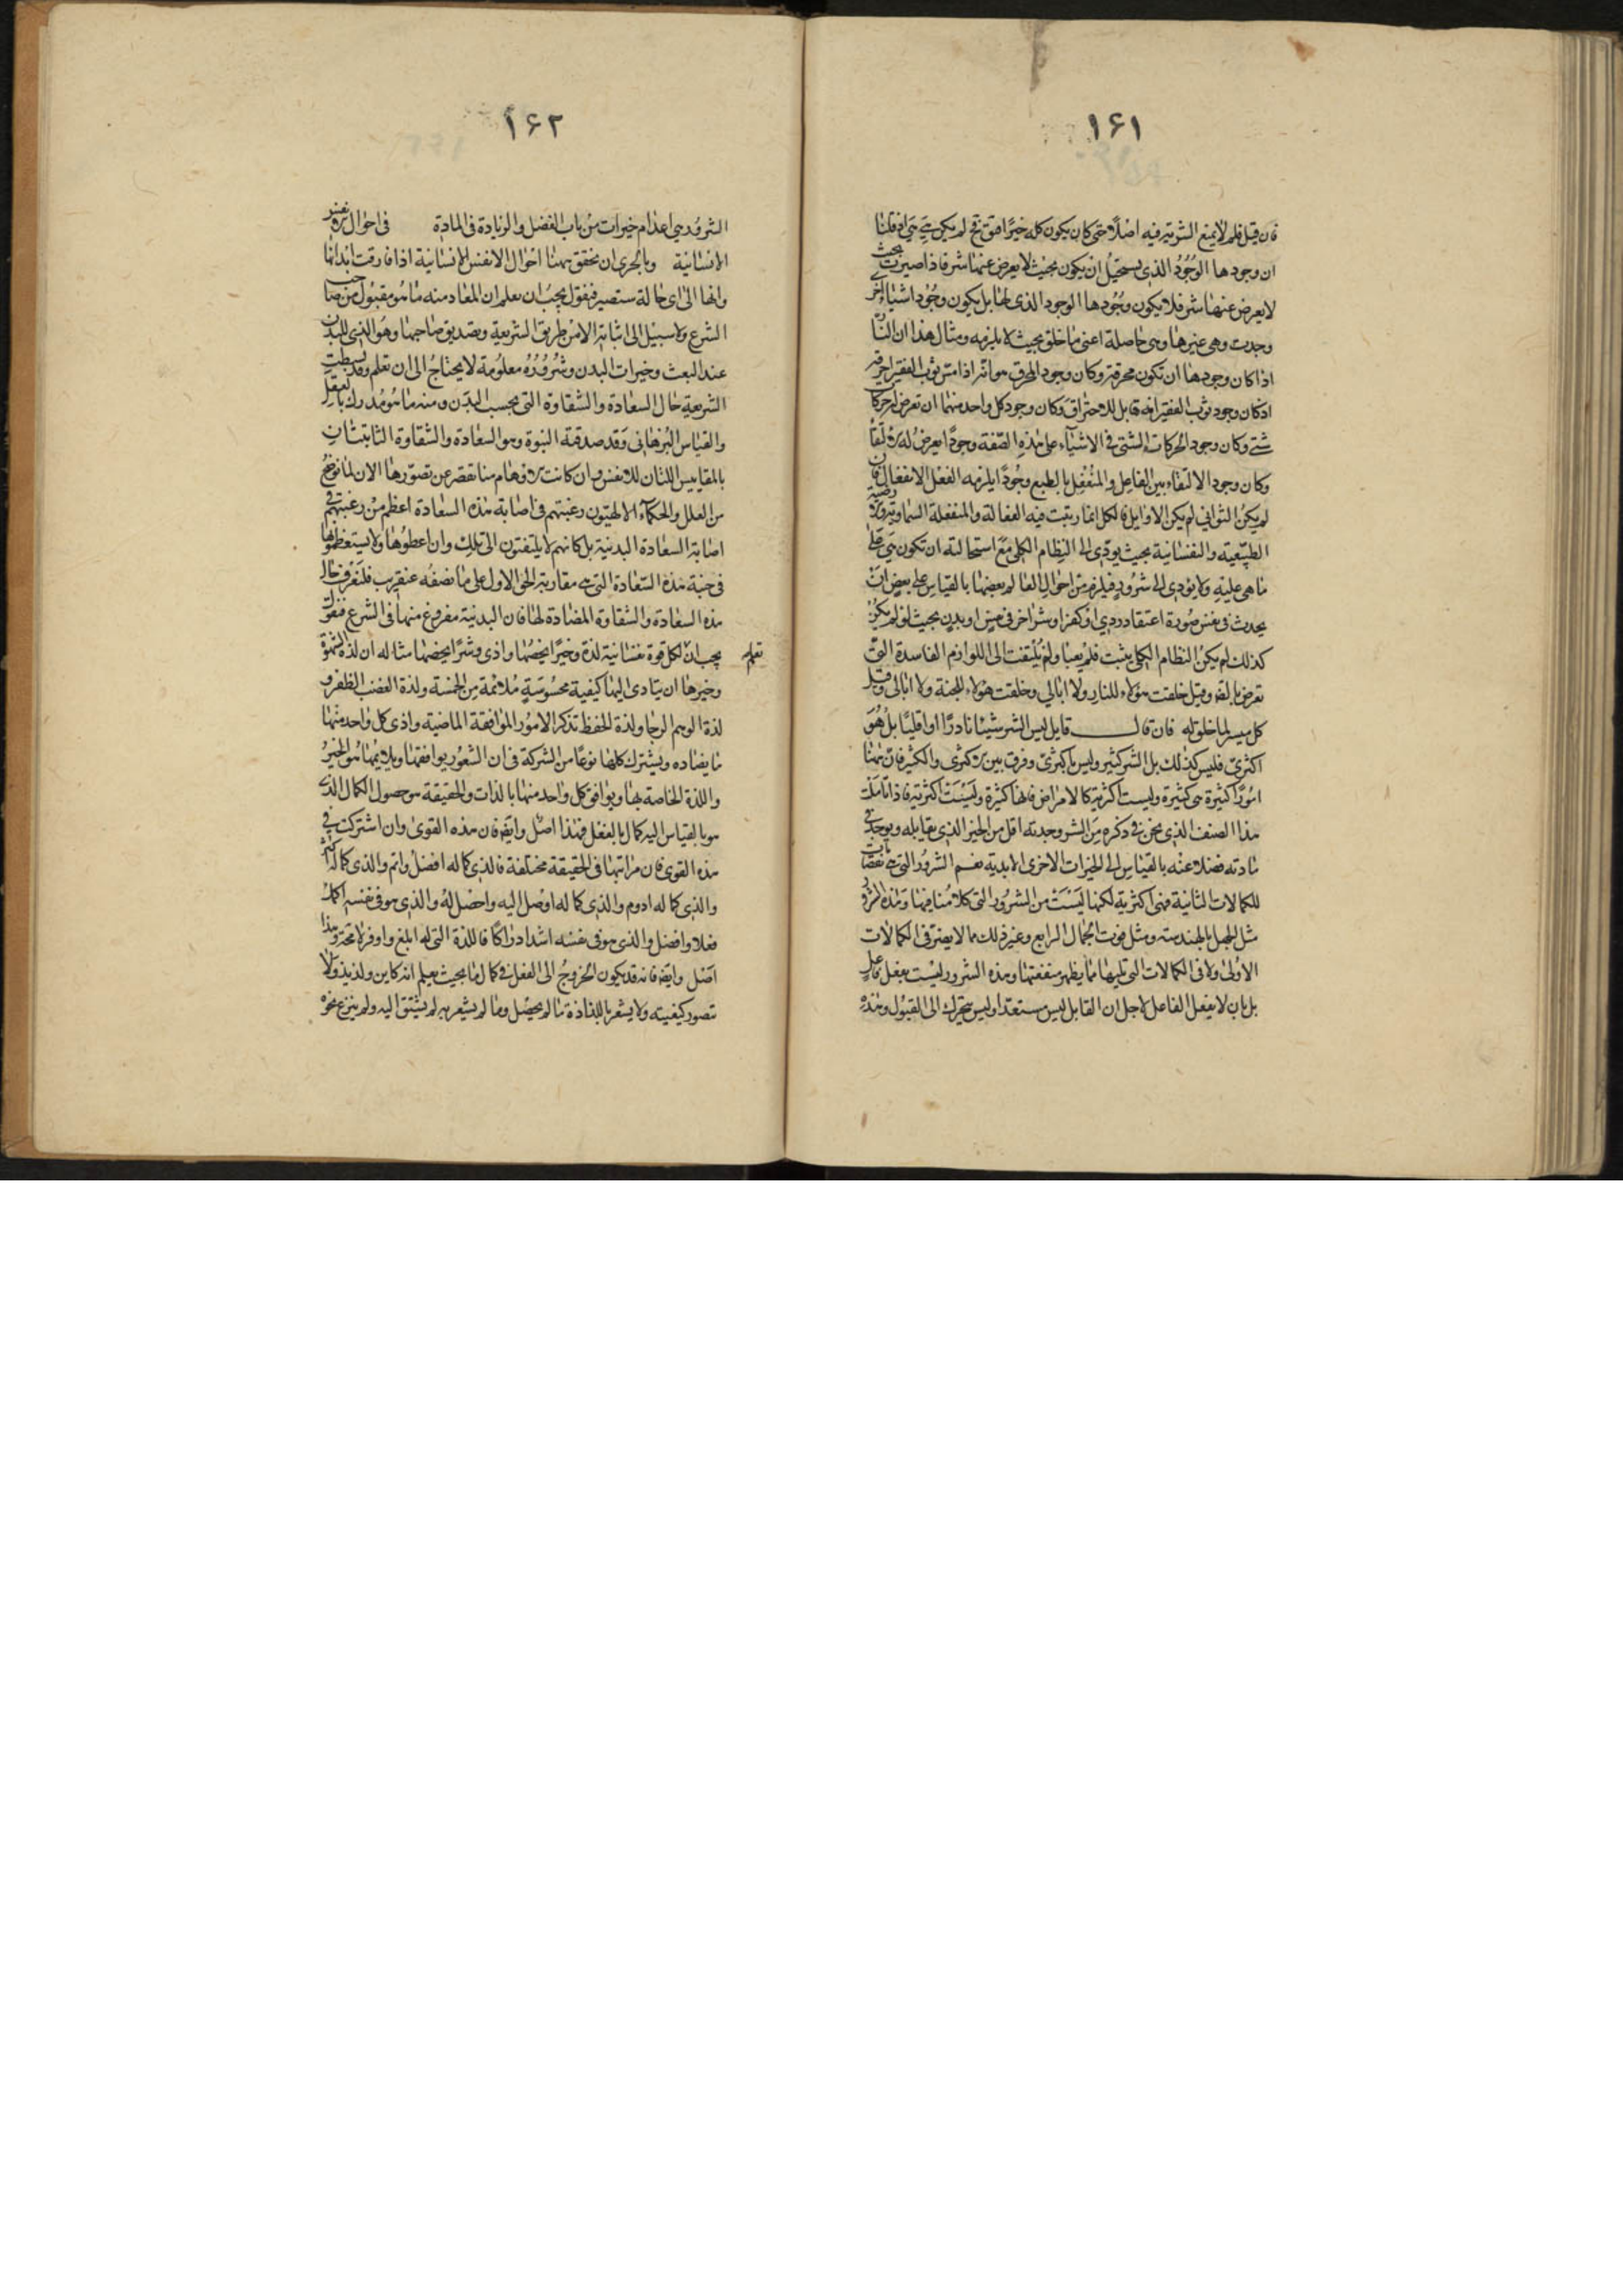 ١۶١
فان قيل فلم لا يمنع الشرية فيه اصلا حتى كان يكون كله خيرا فيقال لم يكن هي هي اذ قلنا
ان وجودها الوجود الذى يستحيل ان يكون بحيث لا يعرض عنها شر فاذا صيرت بحيث
لا يعرض عنها شر فلا يكون وجودها الوجود الذى لها بل يكون وجود اشياء اخر
وجدت وهى غيرها وهى حاصلة اعنى ما خلق بحيث لا يلزمه ومثال هذا ان النا
اذا كان وجودها ان تكون محرقة وكان وجود المحرق هو انه اذا مس ثوب الفقير احرقه
اذ كان وجود ثوب الفقير انه قابل للاحتراق وكان وجود كل واحد منهما ان تعرض له حركا
شتى وكان وجود الحركات الشتى فى الاشياء على هذه الصفة وجودا يعرض له الالتقا
وكان وجود الالتقاء بين الفاعل والمنفعل بالطبع وجودا يلزمه الفعل الانفعال فان
لم يكن الثوانى لم يكن الاوايل فالكل انما رتبت فيه الفعالة والمنفعلة السماوية والارضية
الطبيعية والنفسانية بحيث يودى الى النظام الكلى مع استحالته ان تكون هي على
ما هى عليه ولا يؤدى الى شرور فيلزم من احوال العالم بعضها بالقياس على بعض ان
يحدث فى نفس صورة اعتقاد ردى او كفر او شر اخر فى نفس او بدن بحيث لو لم يكن
كذلك لم يكن النظام الكلى يثبت فلم يعبا ولم يلتفت الى اللوازم الفاسدة التى
تعرض بالضر وقيل خلقت هؤلاء للنار ولا ابالى وخلقت هؤلاء للجنة ولا ابالى وقيل
كل ميسر لما خلق له فان قال قايل ليس الشر شيئا نادرا او اقليا بل هو
اكثرى فليس كذلك بل الشر كثير وليس باكثرى وفرق بين الاكثرى والكثير فان ههنا
امورا كثيرة هى كثيرة وليست اكثرية كالامراض فانها كثيرة وليست اكثرية فاذا تاملت
هذا الصنف الذى نحن فى ذكره من الشر وجدته اقل من الخير الذى يقابله ويوجد فى
مادته فضلا عنه بالقياس الى الخيرات الاخرى الابدية نعم الشرور التى هى نقصانات
للكمالات الثانية فهى اكثرية لكنها ليست من الشرور التى كلامنا فيها وهذه الشرور
مثل الجهل بالهندسة ومثل فوت الجمال الرايع وغير ذلك مما لا يضر فى الكمالات
الاولى ولا فى الكمالات التى تليها مما يظهر منفعتها وهذه الشرور ليست بفعل فاعل
بل بان لا يفعل الفاعل لاجل ان القابل ليس مستعدا او ليس يتحرك الى القبول وهذه
١۶٢
الشرور هى اعدام خيرات من باب الفضل والزيادة فى المادة فى احوال
الانسانية وبالحرى ان نحقق ههنا احوال الانفس الانسانية اذا فارقت ابدانها
وانها الى اى حالة ستصير فنقول يجب ان يعلم ان المعاد منه ما هو مقبول من صاحب
الشرع ولا سبيل الى اثباته الا من طريق الشريعة وتصديق صاحبها وهو الذى للبدن
عند البعث وخيرات البدن وشروره معلومة لا يحتاج الى ان تعلم وقد بسطت
الشريعة حال السعادة والشقاوة التى بحسب البدن ومنه ما هو مدرك بالعقل
والقياس البرهانى وقد صدقته النبوة وهو السعادة والشقاوة الثابتتان
بالمقاييس اللتان للانفس وان كانت الاوهام منا تقصر عن تصورها الان لما نوضح
من العلل والحكماء الالهيون رغبتهم فى اصابة هذه السعادة اعظم من رغبتهم فى
اصابة السعادة البدنية بل كانهم لا يلتفتون الى تلك وان اعطوها ولا يستعظمونها
فى جنبة هذه السعادة التى هى مقاربة الحق الاول على ما نصفه عنقريب فلنعرف حال
هذه السعادة والشقاوة المضادة لها فان البدنية مفروغ منها فى الشرع فنقول
يجب ان تعلم لكل قوة نفسانية لذة وخيرا يخصها واذى وشرا يخصها مثاله ان لذة الشهوة
وخيرها ان يتادى اليها كيفية محسوسة ملائمة من الخمسة ولذة الغضب الظفر و
لذة الوهم الرجا ولذة الحفظ تذكر الامور الموافقة الماضية واذى كل واحد منها
ما يضاده ويشترك كلها نوعا من الشركة فى ان الشعور بموافقتها وملايمها هو الخير
واللذة الخاصة بها وموافق كل واحد منها بالذات والحقيقة هو حصول الكمال الذى
هو بالقياس اليه كمال بالفعل فهذا اصل وايضا فان هذه القوى وان اشتركت فى
هذه القوى فان مراتبها فى الحقيقة مختلفة فالذى كماله افضل واتم والذى كماله اكثر
والذى كماله ادوم والذى كماله اوصل اليه واحصل له والذى هو فى نفسه اكمل
فعلا وافضل والذى هو فى نفسه اشد ادراكا فاللذة التى له ابلغ واوفر لا محة وهذا
اصل وايضا فانه قد يكون الخروج الى الفعل فى كمال ما بحيث يعلم انه كاين ولذيذ ولا
تصور كيفيته ولا يشعر باللذاذة ما لم يحصل وما لم يشعر به لم يشتق اليه ولم ينزع نحوه